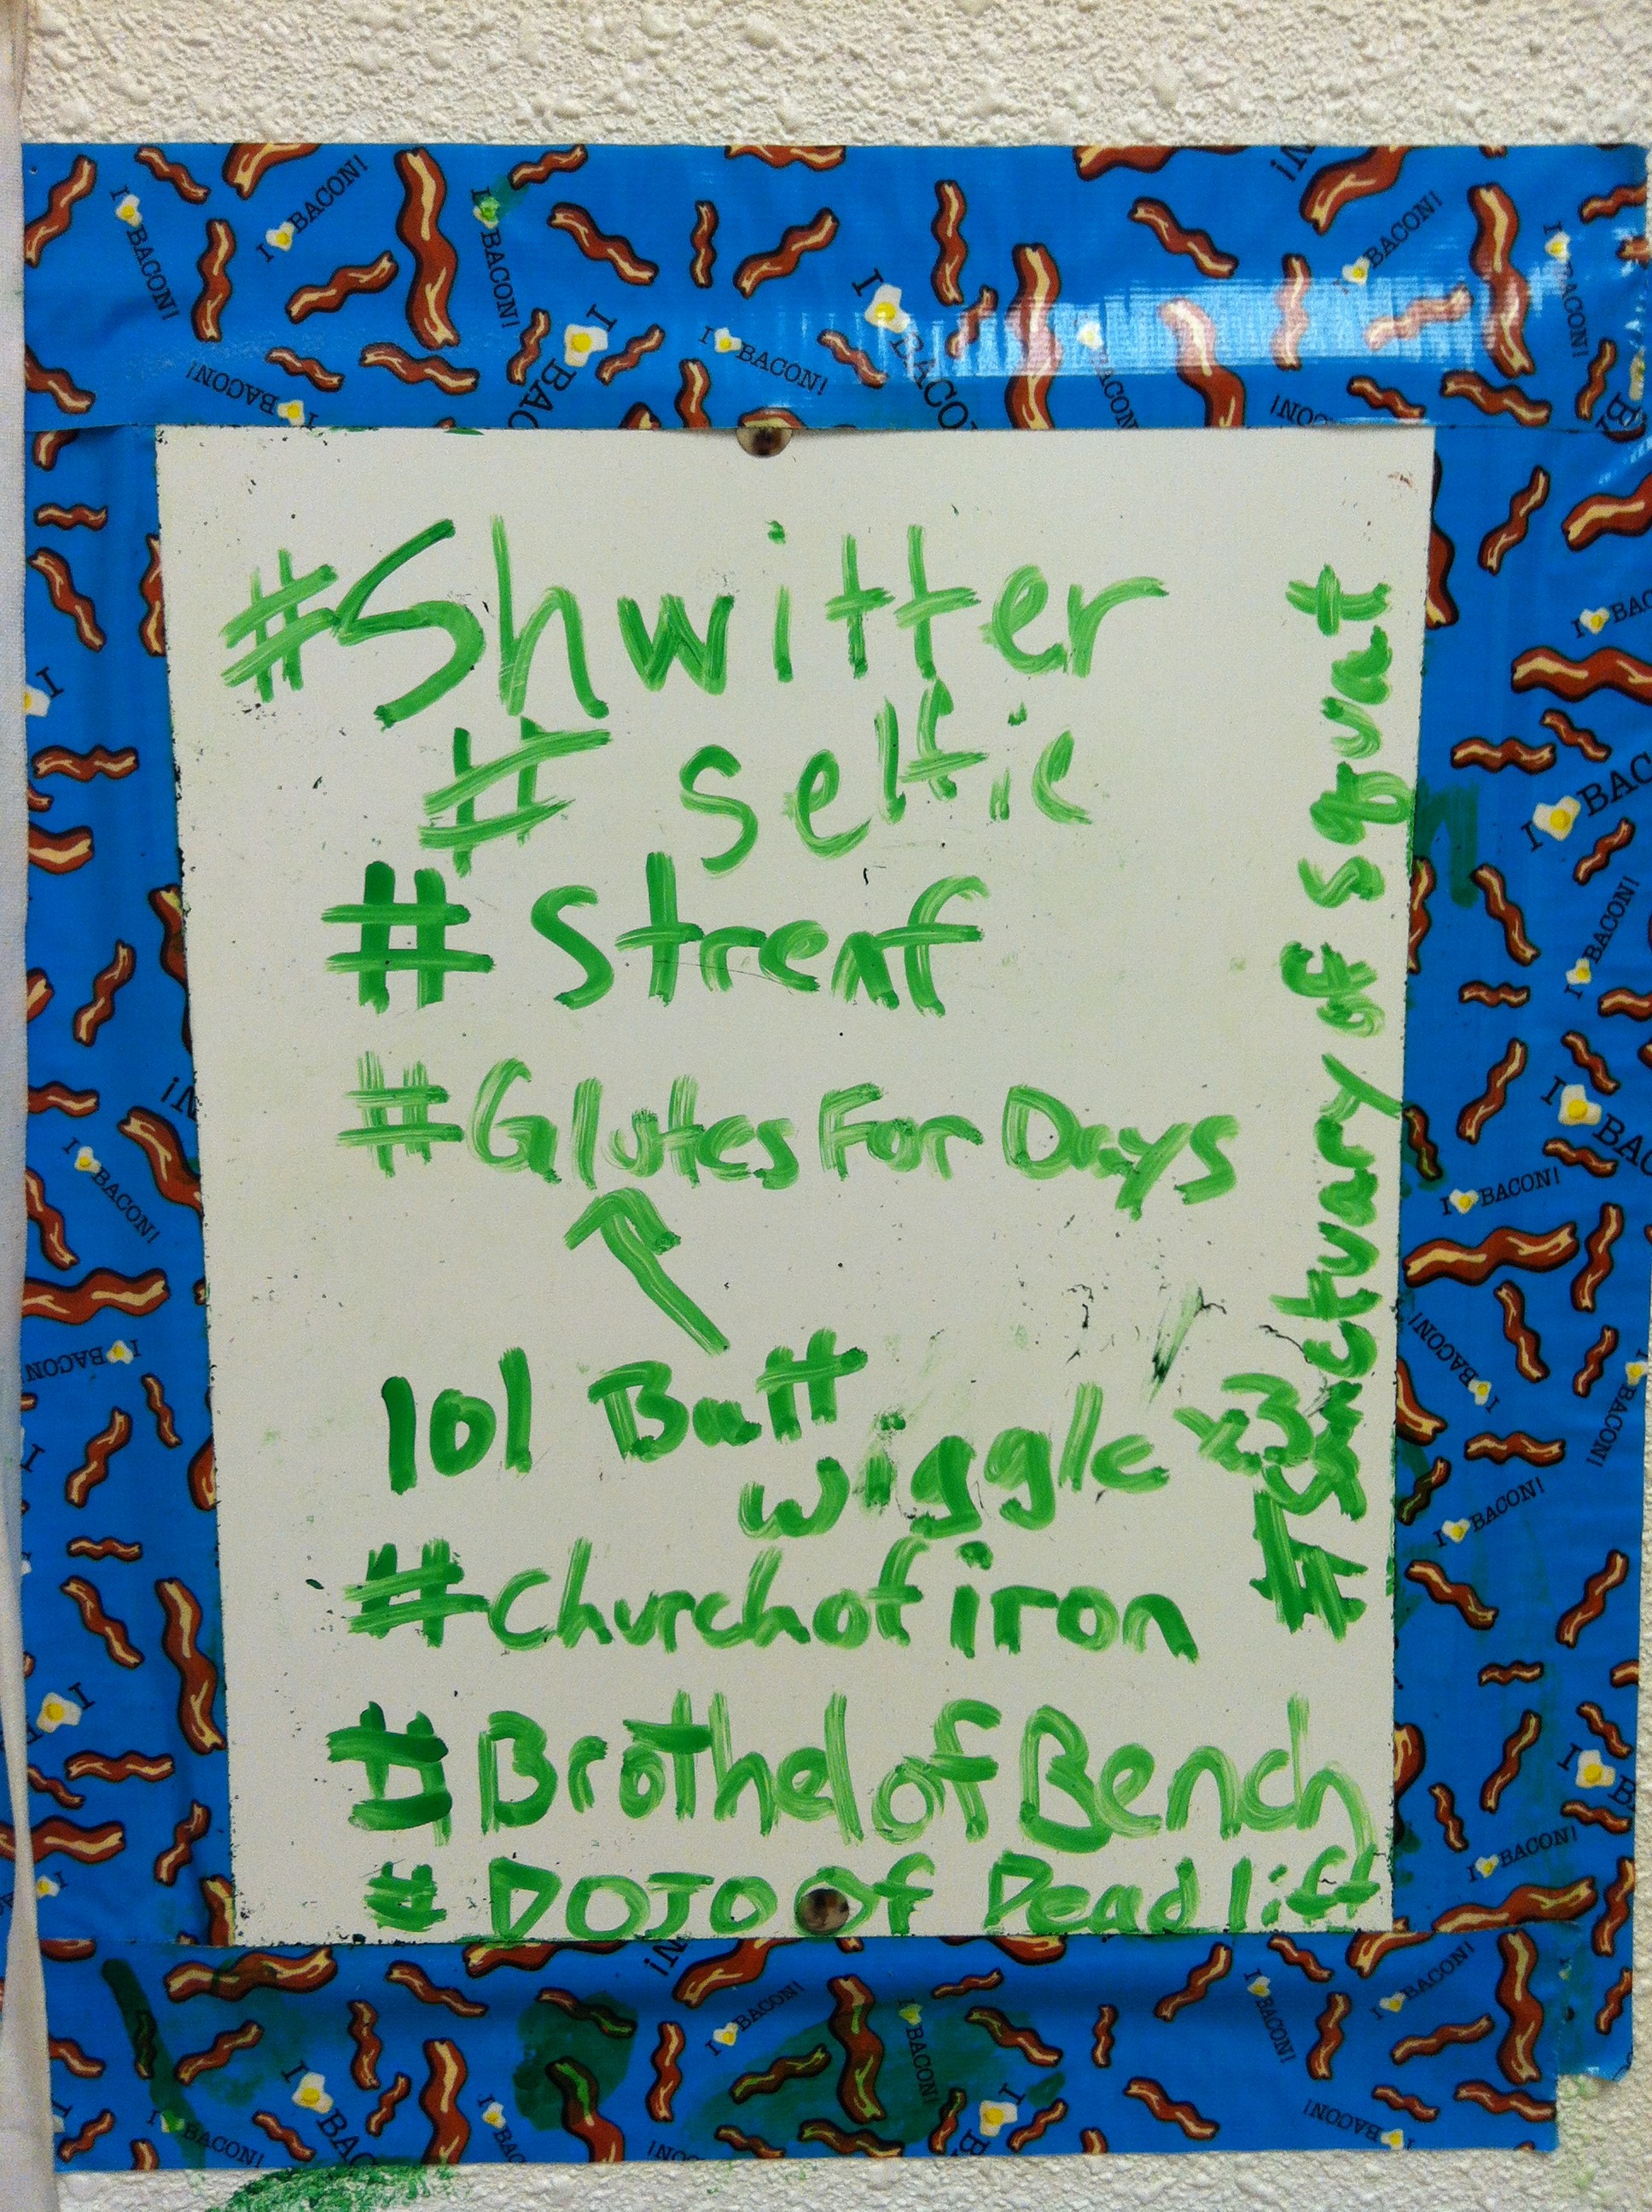 #Shwitter
# selfie
# strenf
#Glutes For Days
lol Butt
wiggle x3
#Churchofiron
#BrothelofBench
# DOJO Of Deadlift
#Sanctuary of squat
I BACON!